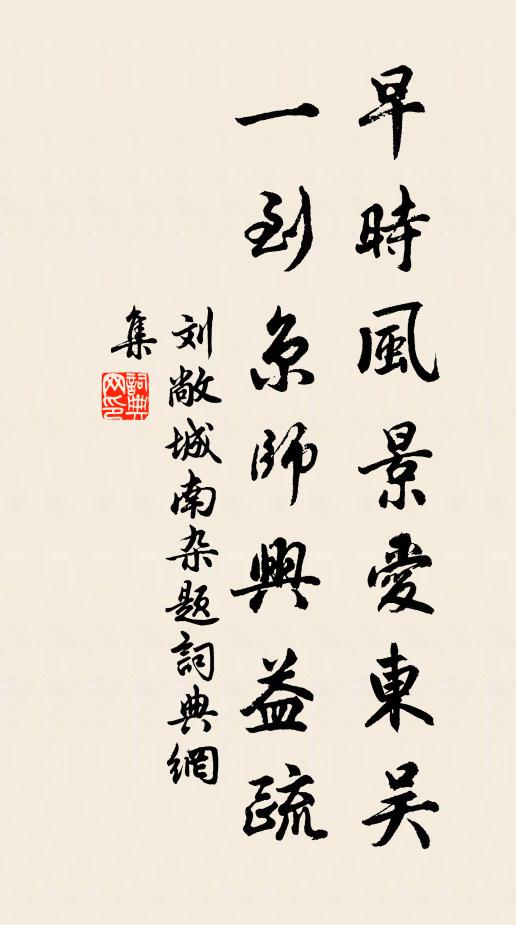 早時風景愛東吴
一到京師興益疏
刘敞城南杂题詞典網
集
詞典
网印